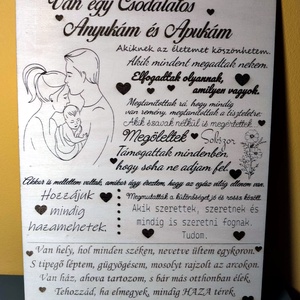 Van egy Csodálatos
Anyukám és Apukám
Akiknek az életemet köszönhetem.
Akik mindent megadtak nekem.
Elfogadtak olyannak,
amilyen vagyok.
Megtanítottak rá, hogy mindig
van remény, megtanítottak a tiszteletre.
Akik szavak nélkül is megértettek.
Megöleltek
Sokszor
Támogattak mindenben,
hogy soha ne adjam fel.
Akkor is mellettem voltak, amikor úgy éreztem, hogy az egész világ ellenem van.
Hozzájuk
mindig
hazamehetek.
Megmutatták a különbséget jó és rossz között.
Akik szerettek, szeretnek és
mindig is szeretni fognak.
Tudom.
Van hely, hol minden széken, nevetve ültem egykoron,
S tipegő léptem, gügyögésem, mosolyt rajzolt az arcokon.
Van ház, ahova tartozom, s bár más otthonban élek,
Tehozzád, ha elmegyek, mindig HAZA térek.